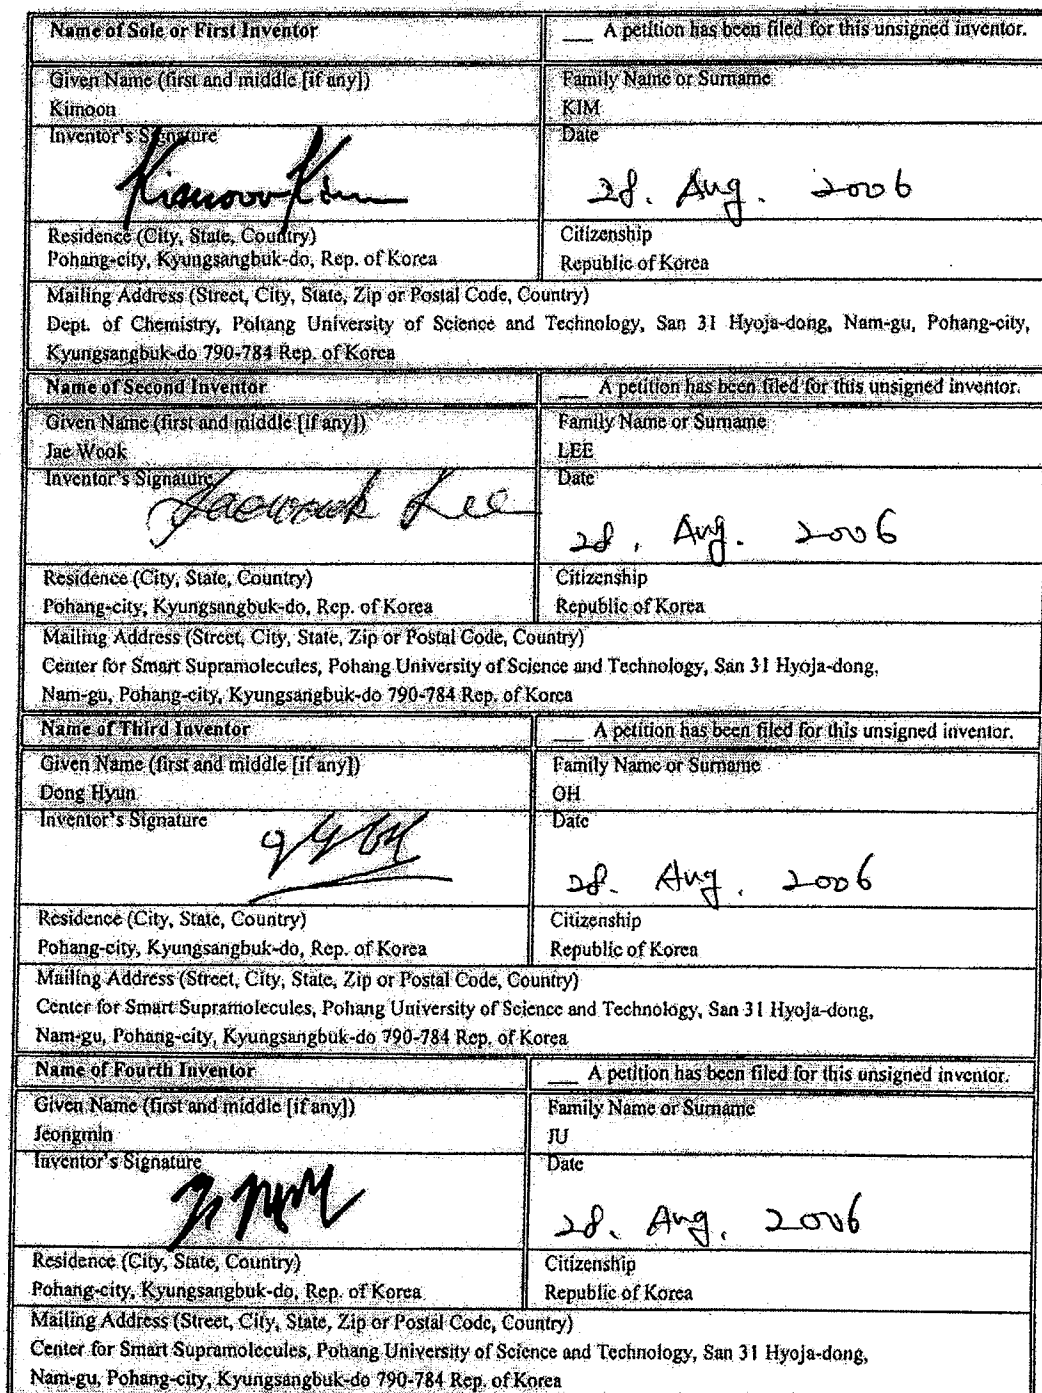 Name of Sole or First Inventor
___ A petition has been filed for this unsigned inventor.
Given Name (first and middle [if any])
Family Name or Surname
Kimoon
KIM
Inventor's Signature
Date
Kimoon Kim
28. Aug. 2006
Residence (City, State, Country)
Citizenship
Pohang-city, Kyungsangbuk-do, Rep. of Korea
Republic of Korea
Mailing Address (Street, City, State, Zip or Postal Code, Country)
Dept. of Chemistry, Pohang University of Science and Technology, San 31 Hyoja-dong, Nam-gu, Pohang-city,
Kyungsangbuk-do 790-784 Rep. of Korea
Name of Second Inventor
___ A petition has been filed for this unsigned inventor.
Given Name (first and middle [if any])
Family Name or Surname
Jae Wook
LEE
Inventor's Signature
Date
Jaewook Lee
28. Aug. 2006
Residence (City, State, Country)
Citizenship
Pohang-city, Kyungsangbuk-do, Rep. of Korea
Republic of Korea
Mailing Address (Street, City, State, Zip or Postal Code, Country)
Center for Smart Supramolecules, Pohang University of Science and Technology, San 31 Hyoja-dong,
Nam-gu, Pohang-city, Kyungsangbuk-do 790-784 Rep. of Korea
Name of Third Inventor
___ A petition has been filed for this unsigned inventor.
Given Name (first and middle [if any])
Family Name or Surname
Dong Hyun
OH
Inventor's Signature
Date
28. Aug. 2006
Residence (City, State, Country)
Citizenship
Pohang-city, Kyungsangbuk-do, Rep. of Korea
Republic of Korea
Mailing Address (Street, City, State, Zip or Postal Code, Country)
Center for Smart Supramolecules, Pohang University of Science and Technology, San 31 Hyoja-dong,
Nam-gu, Pohang-city, Kyungsangbuk-do 790-784 Rep. of Korea
Name of Fourth Inventor
___ A petition has been filed for this unsigned inventor.
Given Name (first and middle [if any])
Family Name or Surname
Jeongmin
JU
Inventor's Signature
Date
28. Aug. 2006
Residence (City, State, Country)
Citizenship
Pohang-city, Kyungsangbuk-do, Rep. of Korea
Republic of Korea
Mailing Address (Street, City, State, Zip or Postal Code, Country)
Center for Smart Supramolecules, Pohang University of Science and Technology, San 31 Hyoja-dong,
Nam-gu, Pohang-city, Kyungsangbuk-do 790-784 Rep. of Korea